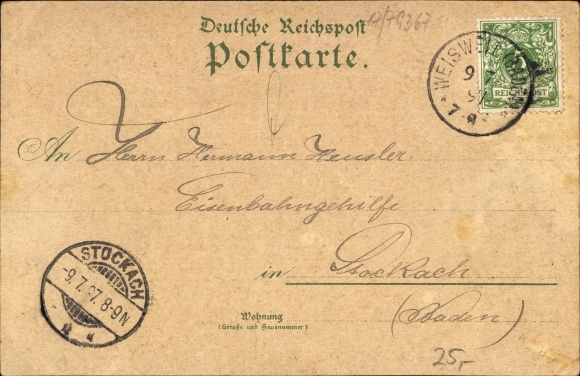 12/79367
Deutsche Reichspost
Postkarte.
WEISWEIL
9 7
97
7-8
REICHSPOST
An Herrn Hermann Heusler.
Eisenbahngehilfe
in Stockach
(Baden)
STOCKACH
-9.7.97.8-9N
Wohnung
(Straße und Hausnummer)
25,-